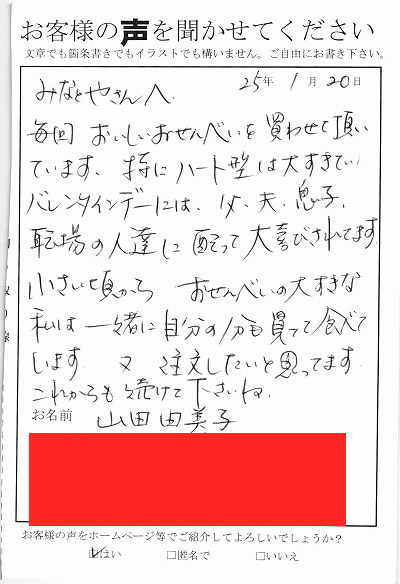 お客様の声を聞かせてください
文章でも箇条書きでもイラストでも構いません。ご自由にお書き下さい。
25年 1月 20日
みなとやさんへ
毎回 おいしいおせんべいを買わせて頂い
ています。特にハート型は大すきで、
バレンタインデーには、父、夫、息子、
職場の人達に配って大喜びされてます。
小さい頃から おせんべいの大すきな
私は一緒に自分の分も買って食べて
います。又 注文したいと思ってます。
これからも続けて下さいね。
お名前 山田由美子
お客様の声をホームページ等でご紹介してよろしいでしょうか?
☑はい □匿名で □いいえ